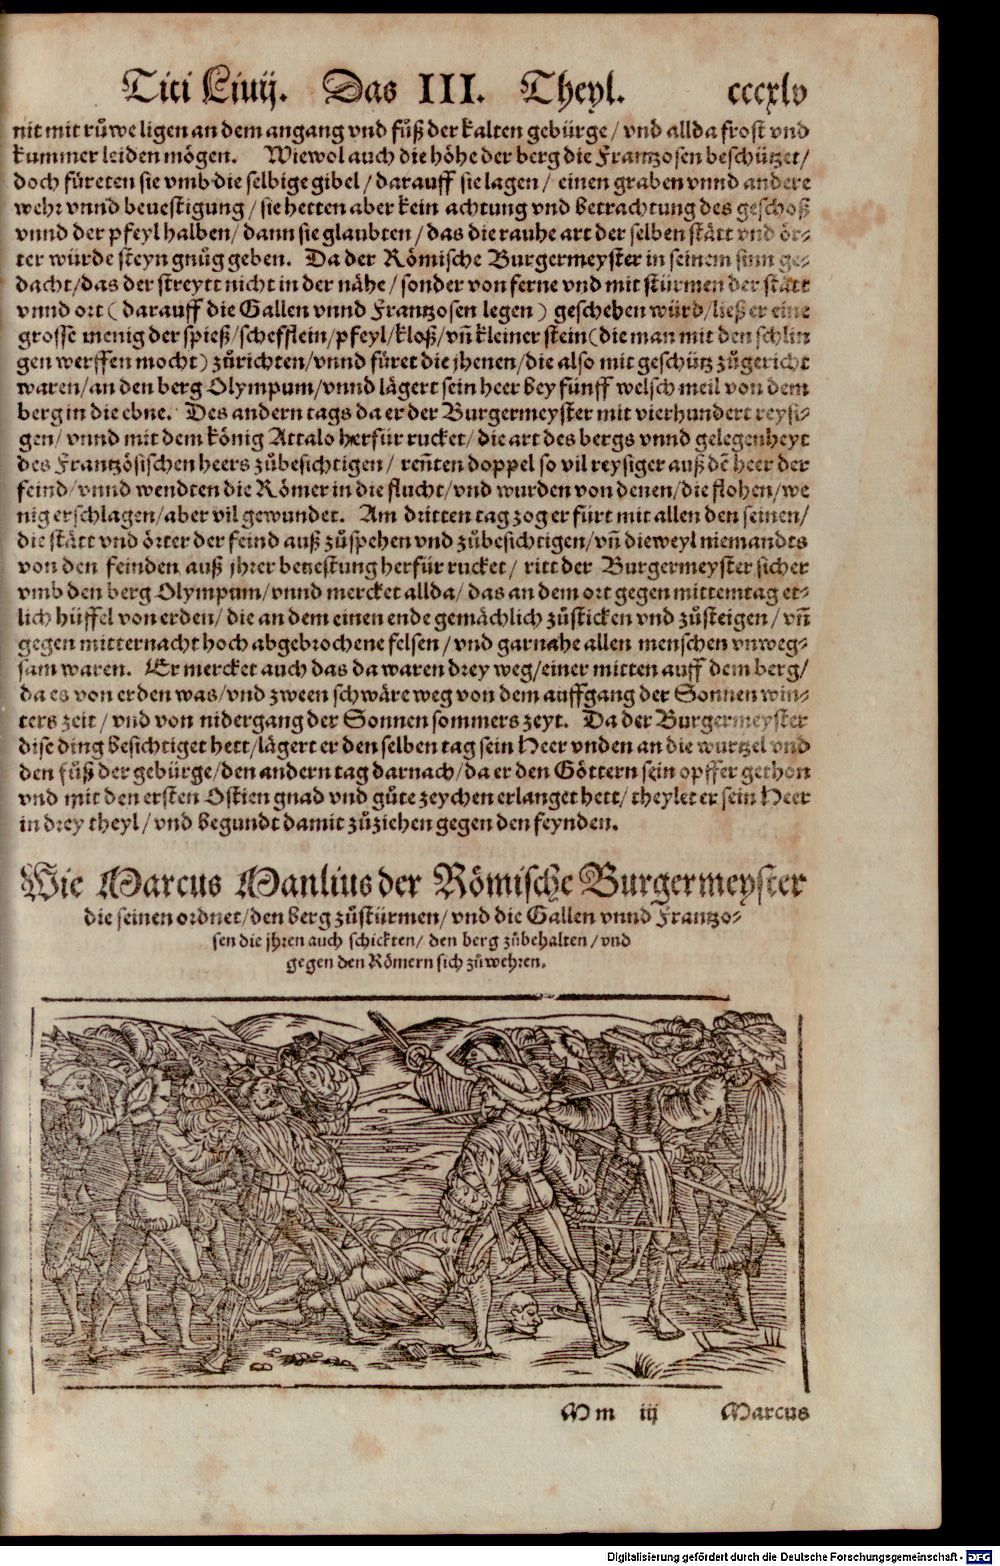 Titi Liuij. Das III. Theyl. cccxlv
nit mit růwe ligen an dem angang vnd fůß der kalten gebürge / vnd allda frost vnd
kummer leiden mögen. Wiewol auch die höhe der berg die Frantzosen beschützet /
doch füreten sie vmb die selbige gibel / darauff sie lagen / einen graben vnnd andere
wehr vnnd beuestigung / sie hetten aber kein achtung vnd betrachtung des geschoß
vnnd der pfeyl halben / dann sie glaubten / das die rauhe art der selben stätt vnd ör⸗
ter würde steyn gnůg geben. Da der Römische Burgermeyster in seinem sinn ge⸗
dacht / das der streytt nicht in der nähe / sonder von ferne vnd mit stürmen der stätt
vnnd ort ( darauff die Gallen vnnd Frantzosen legen ) geschehen würd / ließ er eine
grosse menig der spieß / schefflein / pfeyl / kloß / vñ kleiner stein ( die man mit den schlin
gen werffen mocht ) zůrichten / vnnd füret die jhenen / die also mit geschütz zůgericht
waren / an den berg Olympum / vnnd lägert sein heer bey fünff welsch meil von dem
berg in die ebne. Des andern tags da er der Burgermeyster mit vierhundert reysi⸗
gen / vnnd mit dem könig Attalo herfür rucket / die art des bergs vnnd gelegenheyt
des Frantzösischen heers zůbesichtigen / reñten doppel so vil reysiger auß dē heer der
feind / vnnd wendten die Römer in die flucht / vnd wurden von denen / die flohen / we
nig erschlagen / aber vil gewundet. Am dritten tag zog er fürt mit allen den seinen /
die stätt vnd örter der feind auß zůspehen vnd zůbesichtigen / vñ dieweyl niemandts
von den feinden auß jhrer beuestung herfür rucket / ritt der Burgermeyster sicher
vmb den berg Olympum / vnnd mercket allda / das an dem ort gegen mittemtag et⸗
lich hüffel von erden / die an dem einen ende gemächlich zůsticken vnd zůsteigen / vñ
gegen mitternacht hoch abgebrochene felsen / vnd garnahe allen menschen vnweg⸗
sam waren. Er mercket auch das da waren drey weg / einer mitten auff dem berg /
da es von erden was / vnd zween schwäre weg von dem auffgang der Sonnen win⸗
ters zeit / vnd von nidergang der Sonnen sommers zeyt. Da der Burgermeyster
dise ding besichtiget hett / lägert er den selben tag sein Heer vnden an die wurtzel vnd
den fůß der gebürge / den andern tag darnach / da er den Göttern sein opffer gethon
vnd mit den ersten Ostien gnad vnd gůte zeychen erlanget hett / theylet er sein Heer
in drey theyl / vnd begundt damit zůziehen gegen den feynden.
Wie Marcus Manlius der Römische Burgermeyster
die seinen ordnet / den berg zůstürmen / vnd die Gallen vnnd Frantzo⸗
sen die jhren auch schickten / den berg zůbehalten / vnd
gegen den Römern sich zůwehren.
Mm iij Marcus
Digitalisierung gefördert durch die Deutsche Forschungsgemeinschaft - DFG